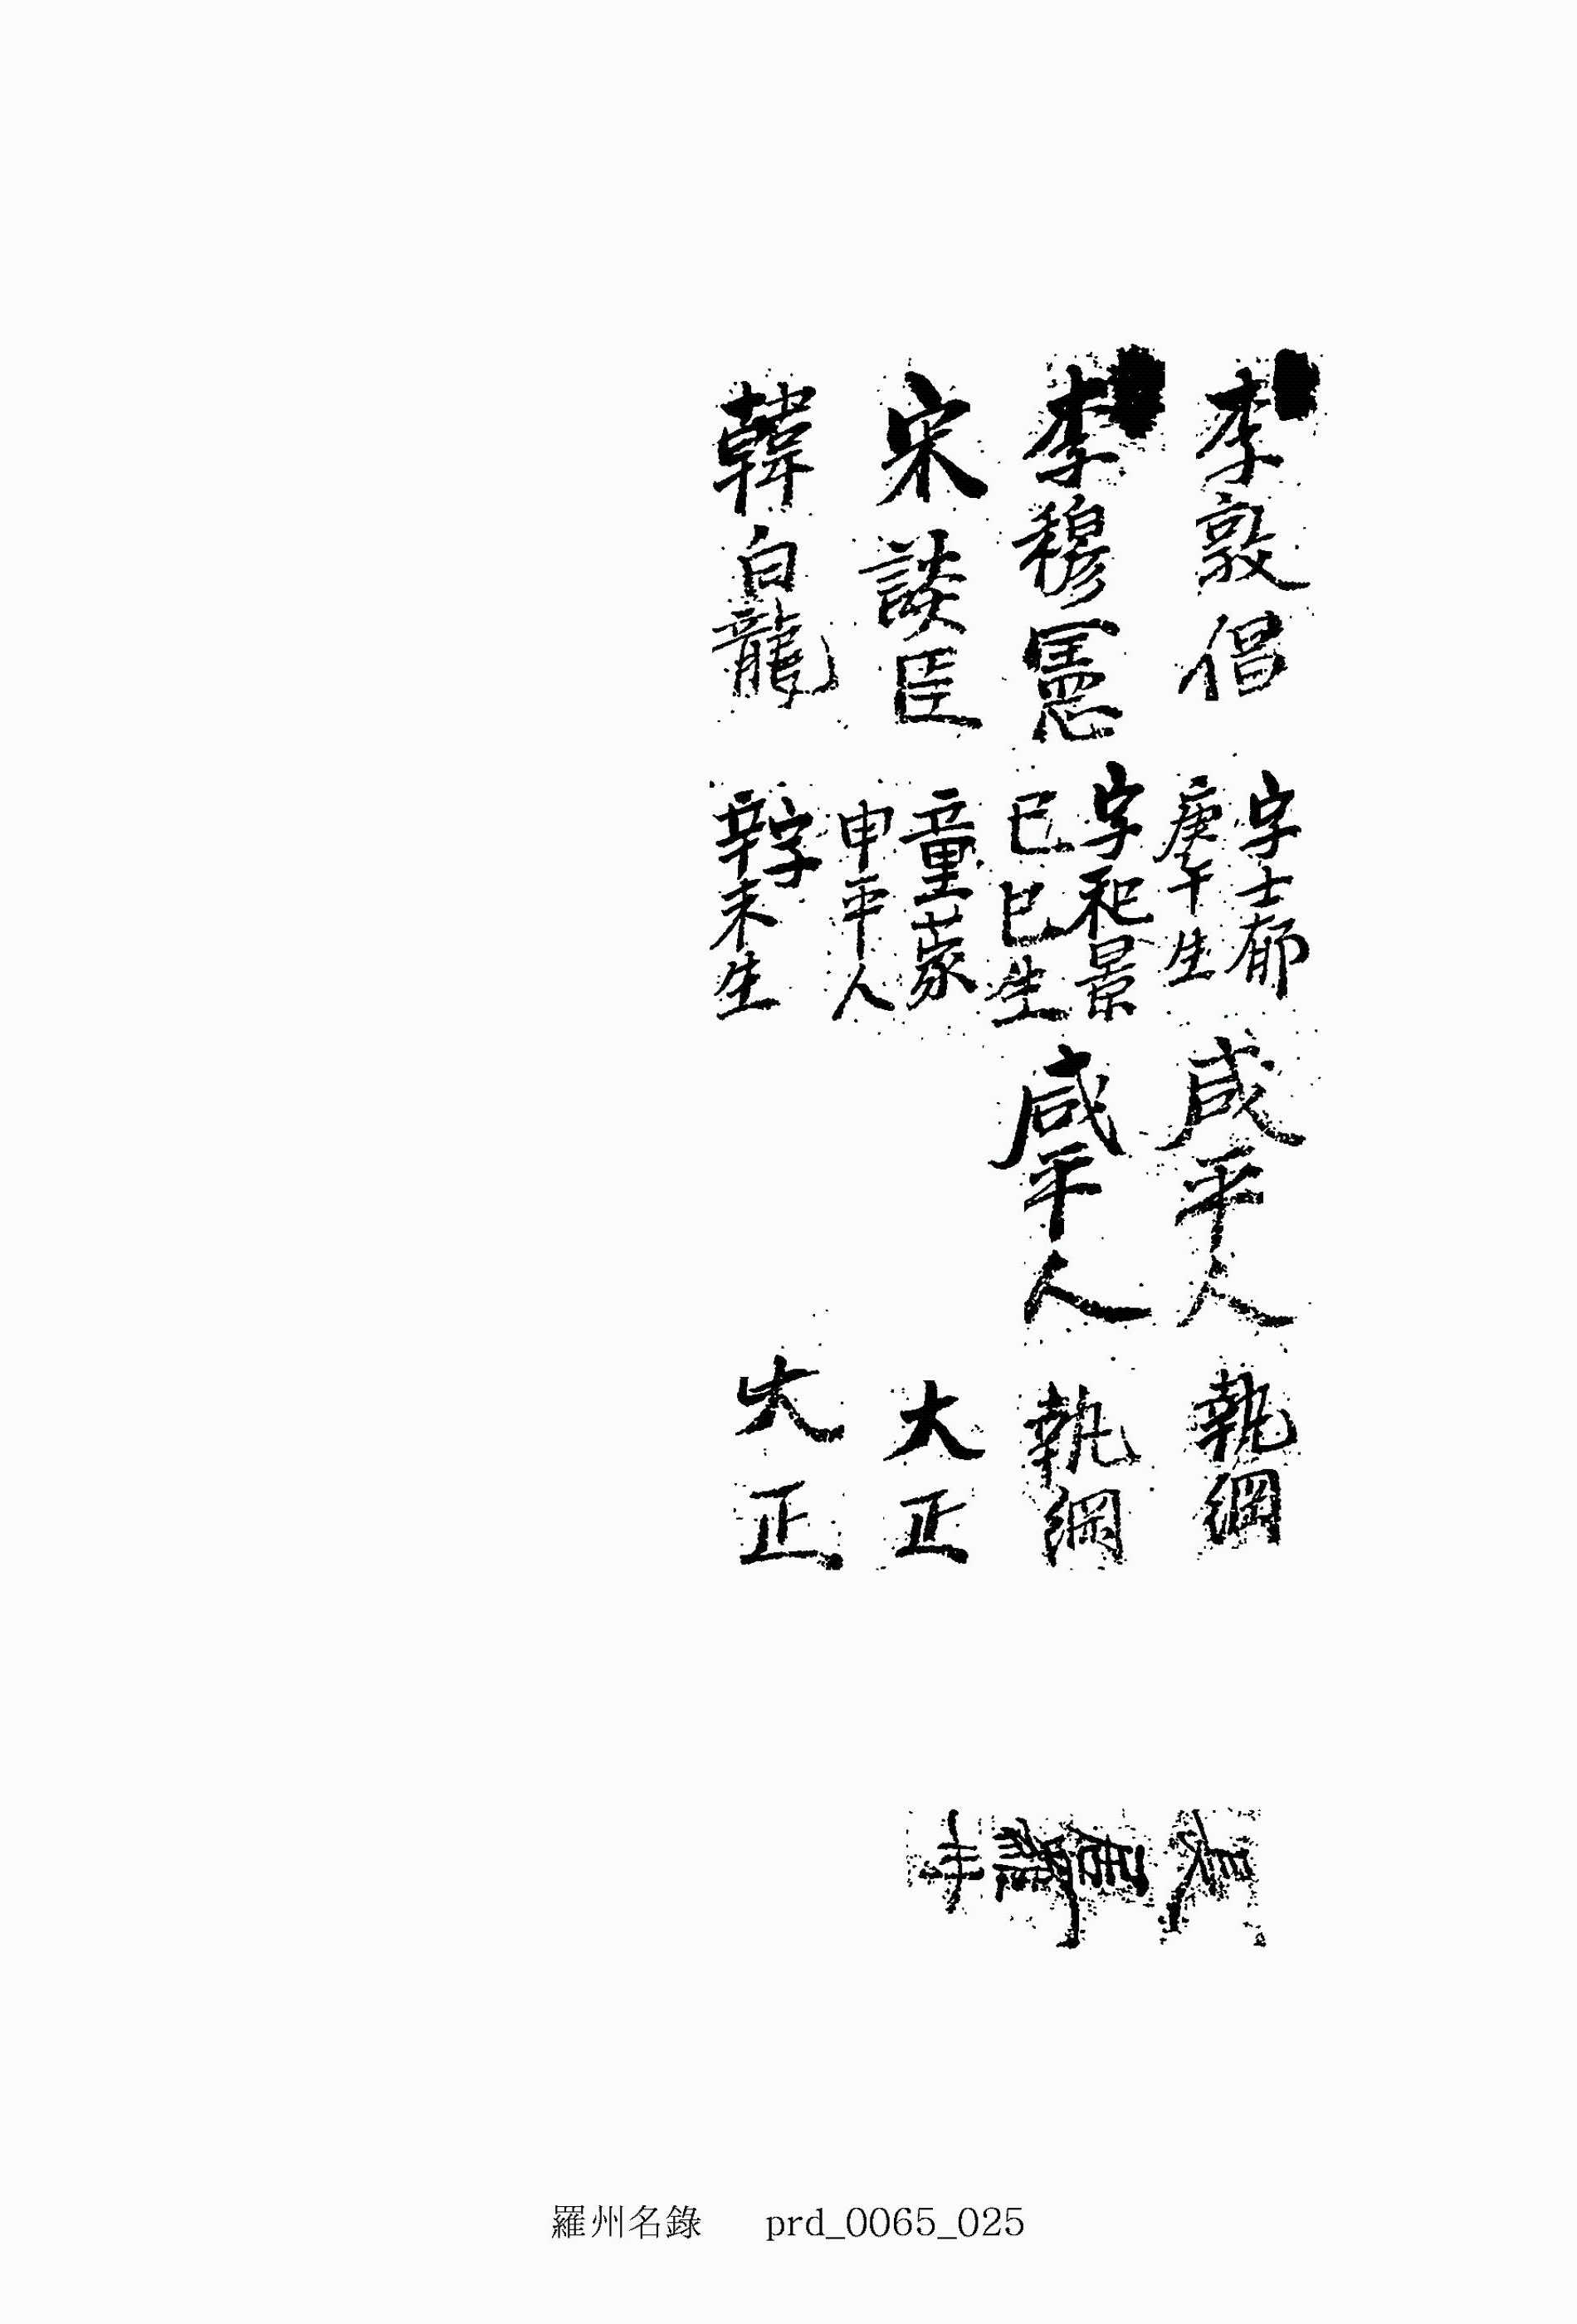 李敦倡 字士郁 庚午生 咸平人 執綱
李穆憲 字和景 己巳生 咸平人 執綱
宋談臣 童蒙 申平人 大正
韓白龍 字 辛未生 大正
羅州名錄 prd_0065_025